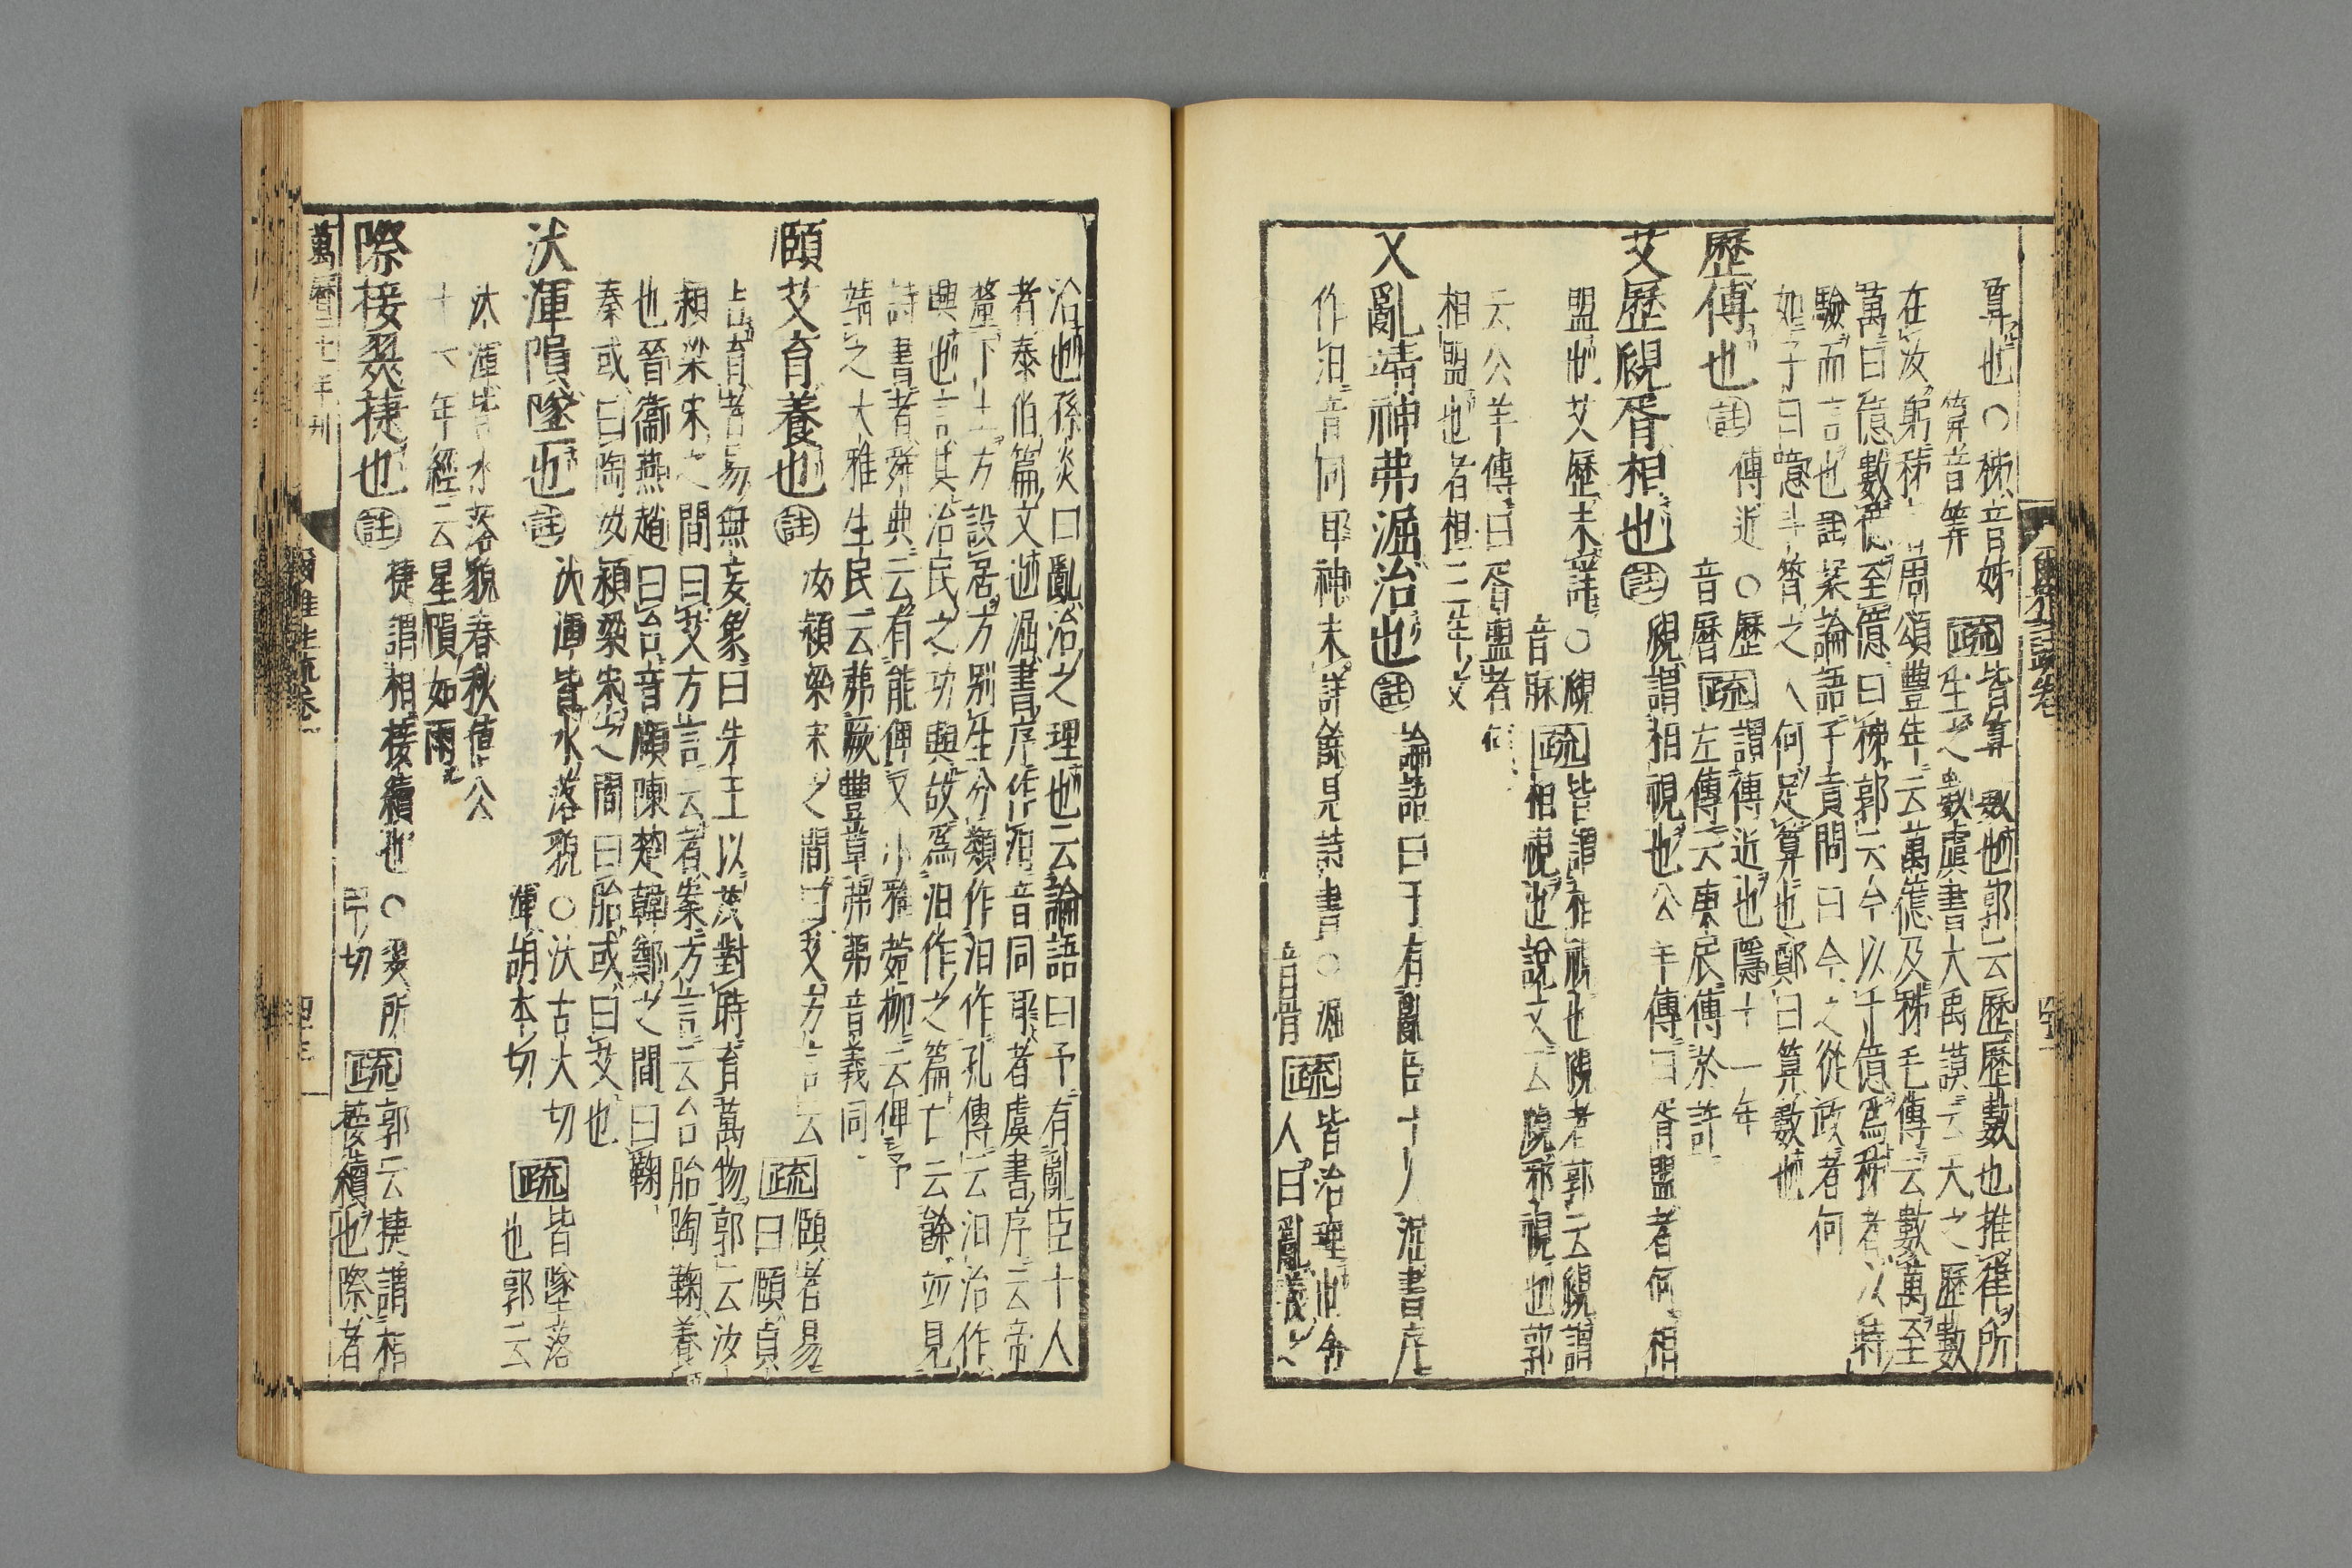 算也○秭音姊
算音筭
疏皆算數也郭云歷歷數也推算所
生之數虞書大禹謨云天之歷數
在汝躬秭者周頌豐年云萬億及秭毛傳云數萬至
萬曰億數億至億曰秭郭云今以十億爲秭者以時
驗而言也註案論語子貢問曰今之從政者何
如子曰噫斗筲之人何足算也鄭曰算數也
歷傅也註傅近○歷
音曆
疏謂傅近也隱十一年
左傳云庚辰傅於許
艾歷覛胥相也註覛謂相視也公羊傳曰胥盟者何相
盟也艾歷未詳○覛
音脈
疏皆謂相視也覛者郭云覛謂
相視也說文云覛衺視也郭
云公羊傳曰胥盟者何
相盟也者桓三年文
乂亂靖神弗淈治也註論語曰予有亂臣十人淈書序
作汩音同耳神未詳餘見詩書○淈
音骨
疏皆治理也舍
人曰亂義之
治也孫炎曰亂治之理也云論語曰予有亂臣十人
者泰伯篇文也淈書序作汩音同耳者虞書序云帝
釐下土方設居方别生分類作汩作孔傳云汩治作
興也言其治民之功興故爲汩作之篇亡云餘並見
詩書者舜典云有能俾乂小雅菀柳云俾予
靖之大雅生民云茀厥豐草茀弗音義同
頤艾育養也註汝潁梁宋之間曰艾方言云
疏頤者易
曰頤貞
吉育者易無妄象曰先王以茂對時育萬物郭云汝
潁梁宋之間曰艾方言云者案方言云台胎陶鞠養
也晉衞燕趙曰台音頤陳楚韓鄭之間曰鞠
秦或曰陶汝潁梁宋之間曰胎或曰艾也
汱渾隕墜也註汱渾皆水落貌○汱古大切
渾胡本切
疏皆墜落
也郭云
汱渾皆水落貌春秋僖公
十六年經云星隕如雨
際接翜捷也註捷謂相接續也○翜所
甲切
疏郭云捷謂相
接續也際者
萬曆二十一年刊
爾雅註疏卷一
四十三